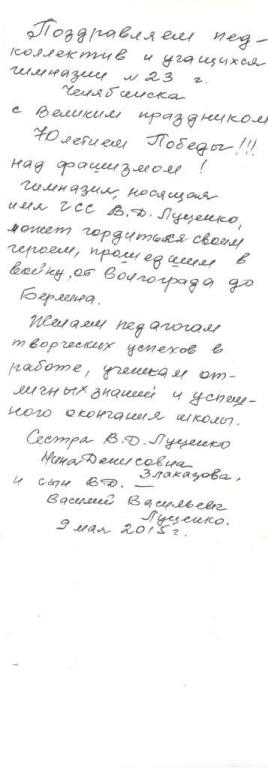 Поздравляем пед-
коллектив и учащихся
гимназии №23 г.
Челябинска
с Великим праздником
70летием Победы!!!
над фашизмом!
Гимназия, носящая
имя ГСС В.Д. Луценко,
может гордиться своим
героем, прошедшим в
войну, от Волгограда до
Берлина.
Желаем педагогам
творческих успехов в
работе, ученикам от-
личных знаний и успеш-
ного окончания школы.
Сестра В.Д. Луценко
Нина Денисовна
Злаказова,
и сын В.Д. —
Василий Васильевич
Луценко.
9 мая 2015г.